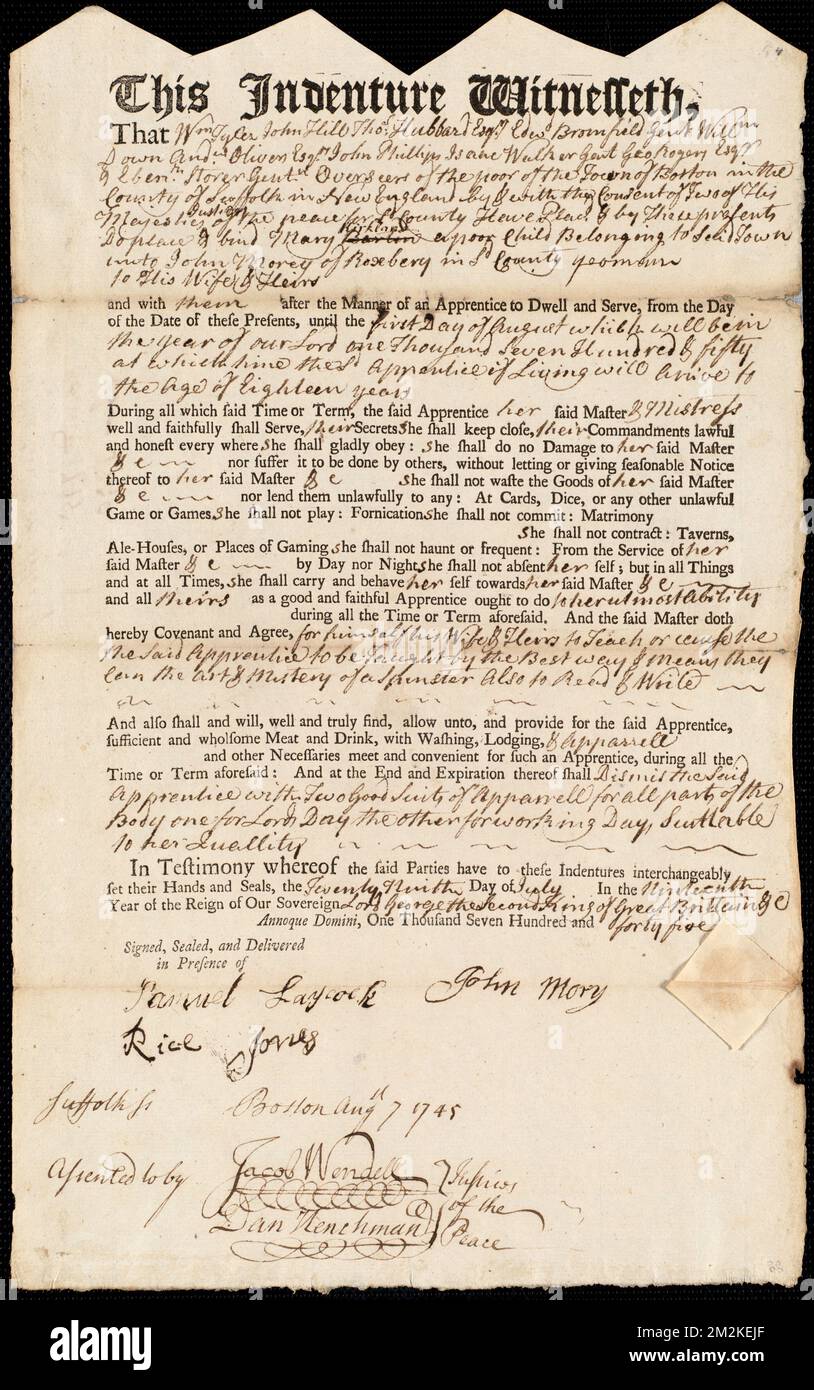 This Indenture Witnesseth,
That Wm Tyler John Hill Thos. Hubbard Esqrs Edwd Bromfield Gent Willm
Down Andw Oliver Esqrs John Phillips Isaac Walker Gent Geo Rogers Esqr
& Ebenr Storer Gentn Overseers of the poor of the Town of Boston in the
County of Suffolk in New England by & with the Consent of Two of His
Majesties Justices of the peace for sd County Have Plac'd & by These presents
Do place & bind Mary a poor Child Belonging to Said Town
unto John Morey of Roxbery in sd County yeoman
to His Wife & Heirs
and with them after the Manner of an Apprentice to Dwell and Serve, from the Day
of the Date of these Presents, until the first Day of August which will be in
the year of our Lord one Thousand Seven Hundred & fifty
at which time the sd Apprentice if Living will arive to
the Age of Eighteen years
During all which said Time or Term, the said Apprentice her said Master & Mistress
well and faithfully shall Serve, their Secrets she shall keep close, their Commandments lawful
and honest every where she shall gladly obey: she shall do no Damage to her said Master
&c nor suffer it to be done by others, without letting or giving seasonable Notice
thereof to her said Master &c she shall not waste the Goods of her said Master
&c nor lend them unlawfully to any: At Cards, Dice, or any other unlawful
Game or Games she shall not play: Fornication she shall not commit: Matrimony
she shall not contract: Taverns,
Ale-Houses, or Places of Gaming she shall not haunt or frequent: From the Service of her
said Master &c by Day nor Night she shall not absent her self; but in all Things
and at all Times, she shall carry and behave her self towards her said Master &c
and all theirs as a good and faithful Apprentice ought to do to her utmost Ability
during all the Time or Term aforesaid. And the said Master doth
hereby Covenant and Agree, for himself his Wife & Heirs to Teach or cause the
the Said Apprentice to be taught by the Best way & Means they
Can the art & Mistery of a Spinster Also to Read & Write
And also shall and will, well and truly find, allow unto, and provide for the said Apprentice,
sufficient and wholsome Meat and Drink, with Washing, Lodging, & Apparrell
and other Necessaries meet and convenient for such an Apprentice, during all the
Time or Term aforesaid: And at the End and Expiration thereof shall Dismis the Said
Apprentice with Two Good Suits of Apparrell for all parts of the
Body one for Lords Day the other for working Days Suitable
to her Quallity
In Testimony whereof the said Parties have to these Indentures interchangeably
set their Hands and Seals, the Twenty Ninth Day of July In the Nineteenth
Year of the Reign of Our Sovereign Lord George the Second King of Great Brittain &c
Annoque Domini, One Thousand Seven Hundred and forty five
Signed, Sealed, and Delivered
in Presence of
Samuel Laycock John Mory
Rice Jones
Suffolk ss Boston Augst 7 1745
Assented to by Jacob Wendell } Justices
Dan Henchman of the
Peace
alamy
Image ID: 2M2KEJF
www.alamy.com